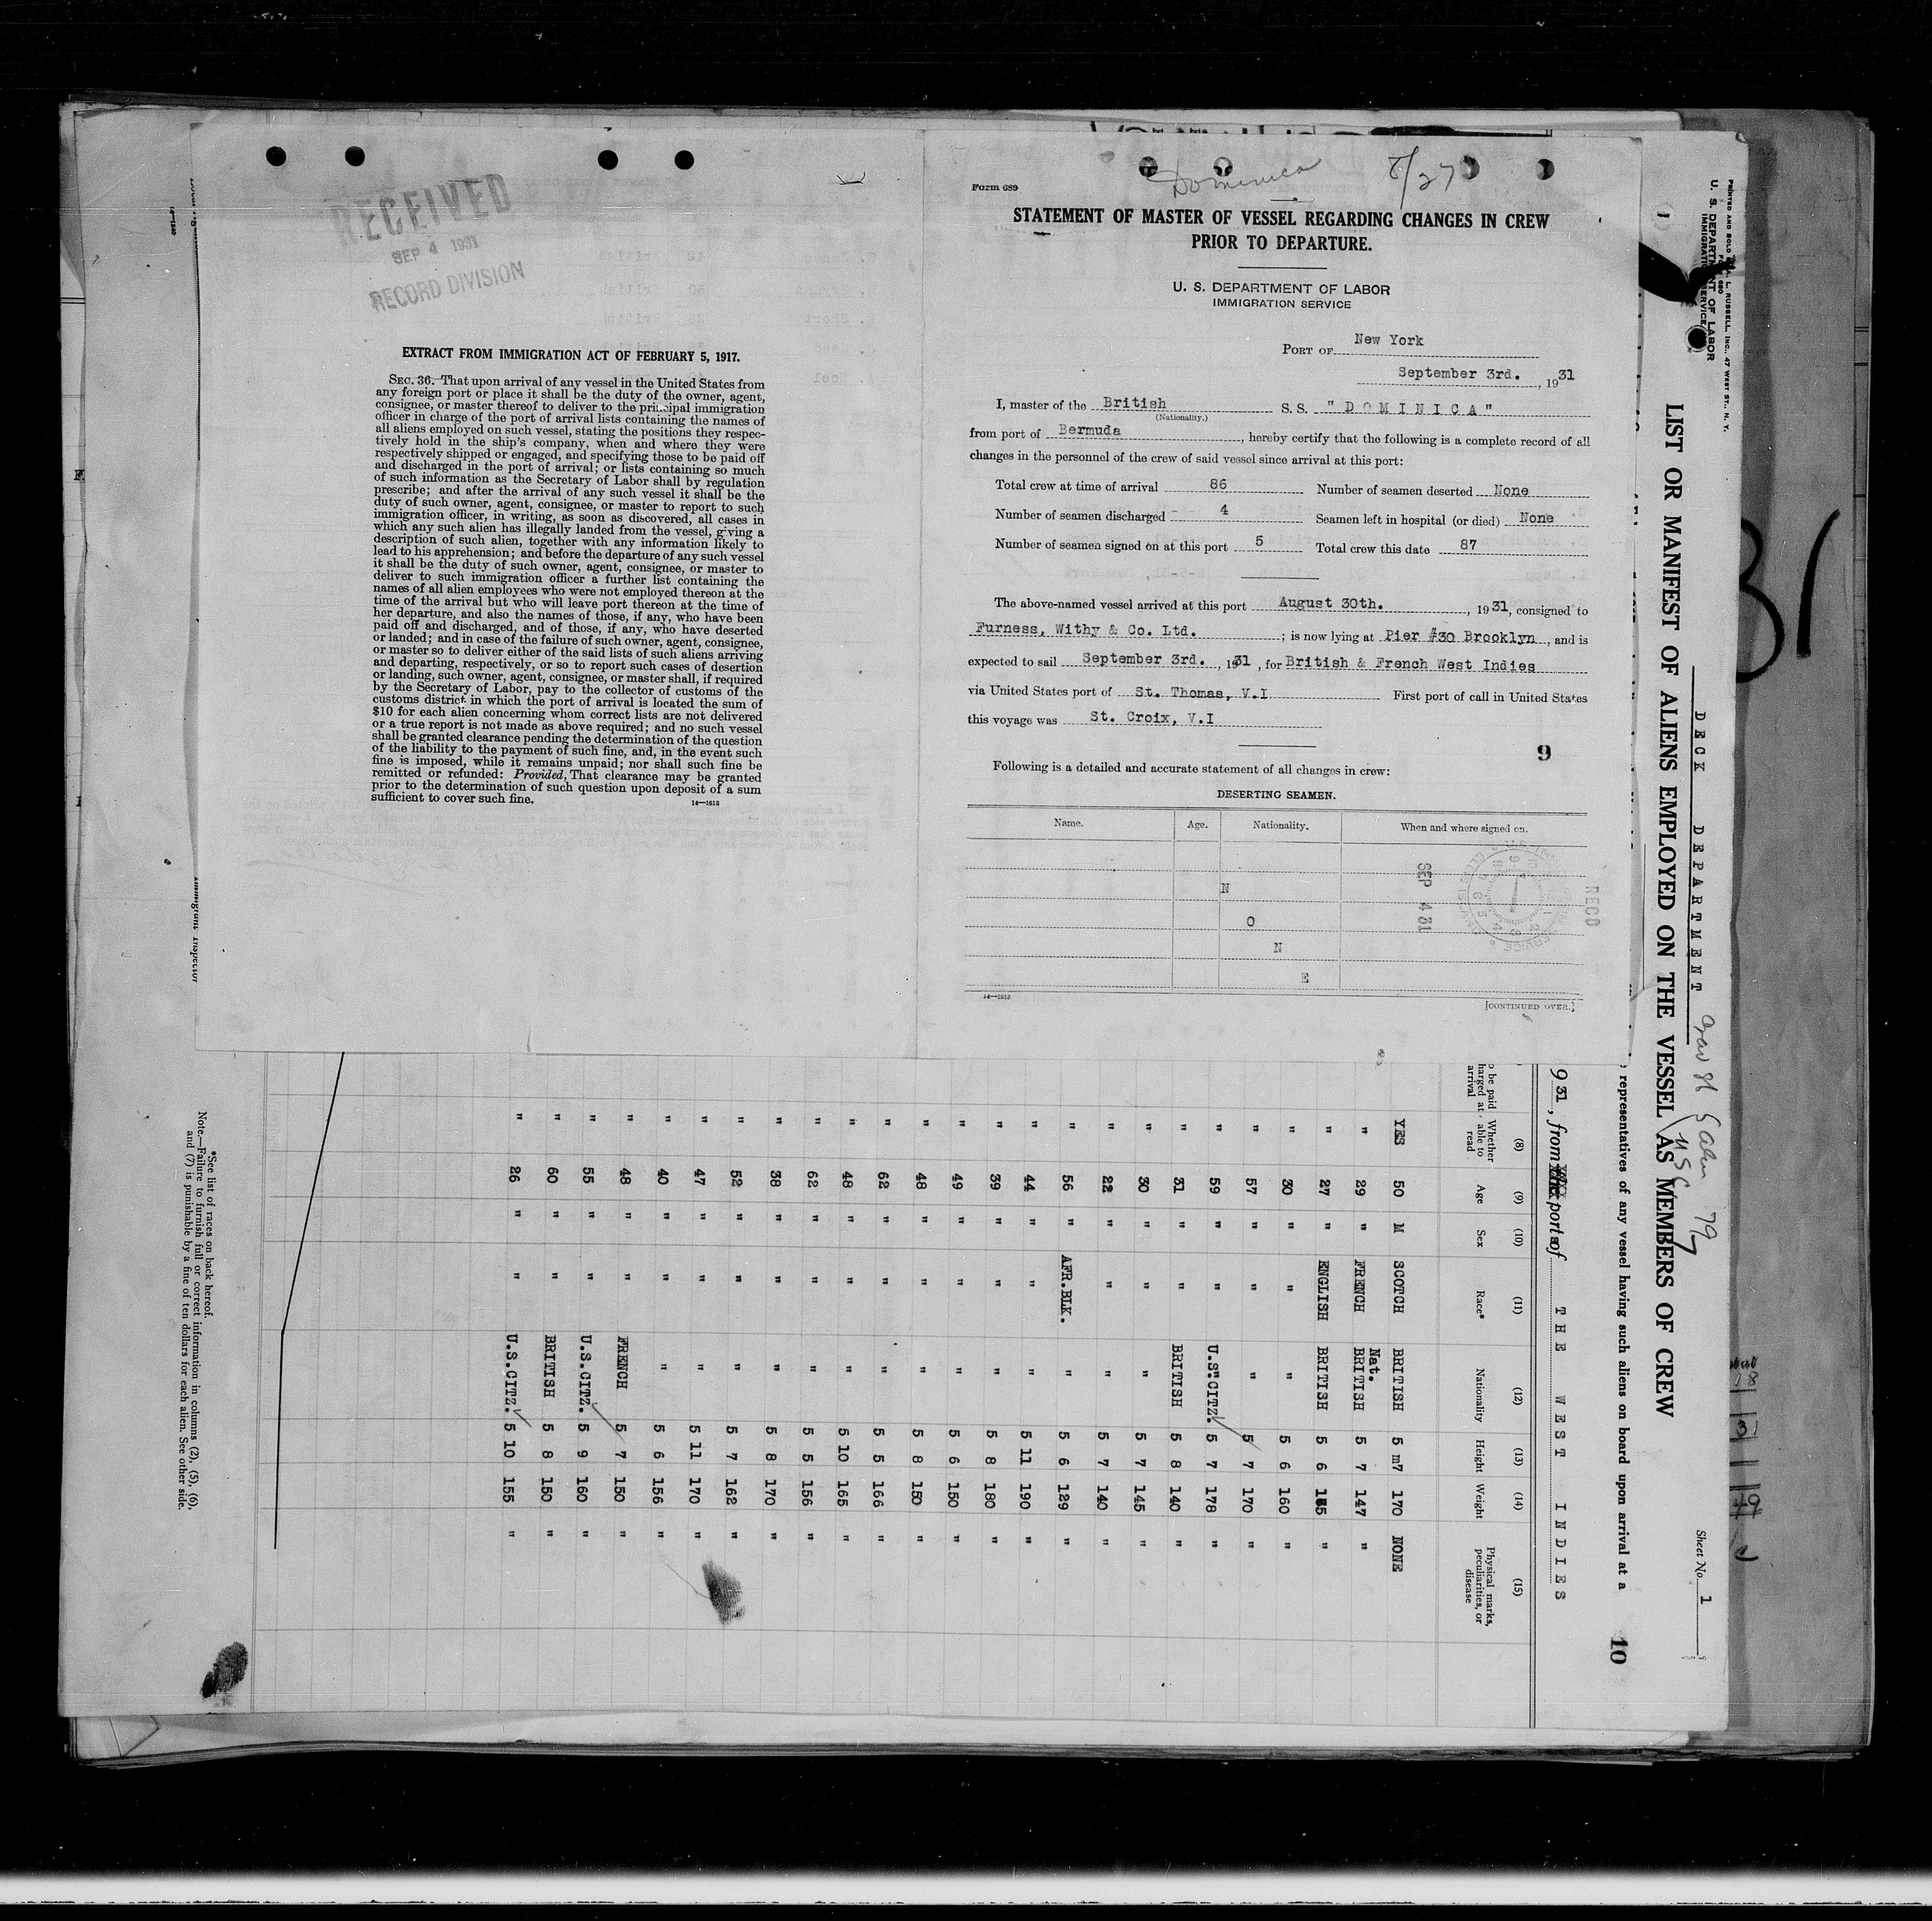 RECEIVED
SEP 4 1931
RECORD DIVISION
EXTRACT FROM IMMIGRATION ACT OF FEBRUARY 5, 1917.
SEC. 36. That upon arrival of any vessel in the United States from
any foreign port or place it shall be the duty of the owner, agent,
consignee, or master thereof to deliver to the principal immigration
officer in charge of the port of arrival lists containing the names of
all aliens employed on such vessel, stating the positions they respec-
tively hold in the ship's company, when and where they were
respectively shipped or engaged, and specifying those to be paid off
and discharged in the port of arrival; or lists containing so much
of such information as the Secretary of Labor shall by regulation
prescribe; and after the arrival of any such vessel it shall be the
duty of such owner, agent, consignee, or master to report to such
immigration officer, in writing, as soon as discovered, all cases in
which any such alien has illegally landed from the vessel, giving a
description of such alien, together with any information likely to
lead to his apprehension; and before the departure of any such vessel
it shall be the duty of such owner, agent, consignee, or master to
deliver to such immigration officer a further list containing the
names of all alien employees who were not employed thereon at the
time of the arrival but who will leave port thereon at the time of
her departure, and also the names of those, if any, who have been
paid off and discharged, and of those, if any, who have deserted
or landed; and in case of the failure of such owner, agent, consignee,
or master so to deliver either of the said lists of such aliens arriving
and departing, respectively, or so to report such cases of desertion
or landing, such owner, agent, consignee, or master shall, if required
by the Secretary of Labor, pay to the collector of customs of the
customs district in which the port of arrival is located the sum of
$10 for each alien concerning whom correct lists are not delivered
or a true report is not made as above required; and no such vessel
shall be granted clearance pending the determination of the question
of the liability to the payment of such fine, and, in the event such
fine is imposed, while it remains unpaid; nor shall such fine be
remitted or refunded: Provided, That clearance may be granted
prior to the determination of such question upon deposit of a sum
sufficient to cover such fine.
14—1613
Dominica 8/27
Form 689
STATEMENT OF MASTER OF VESSEL REGARDING CHANGES IN CREW
PRIOR TO DEPARTURE.
U. S. DEPARTMENT OF LABOR
IMMIGRATION SERVICE
PORT OF New York
September 3rd., 1931
I, master of the British S. S. "DOMINICA"
(Nationality.)
from port of Bermuda, hereby certify that the following is a complete record of all
changes in the personnel of the crew of said vessel since arrival at this port:
Total crew at time of arrival 86 Number of seamen deserted None
Number of seamen discharged 4 Seamen left in hospital (or died) None
Number of seamen signed on at this port 5 Total crew this date 87
The above-named vessel arrived at this port August 30th., 1931, consigned to
Furness, Withy & Co. Ltd.; is now lying at Pier #30 Brooklyn, and is
expected to sail September 3rd., 1931, for British & French West Indies
via United States port of St. Thomas, V.I First port of call in United States
this voyage was St. Croix, V.I
9
Following is a detailed and accurate statement of all changes in crew:
DESERTING SEAMEN.
Name. Age. Nationality. When and where signed on.
N
O
N
E
RECD
SEP 4 31
14—1613
[CONTINUED OVER.]
PRINTED AND SOLD BY A. L. RUSSELL, INC., 47 WEST ST., N. Y.
U. S. DEPARTMENT OF LABOR
IMMIGRATION SERVICE
DECK DEPARTMENT
Sheet No. 1
LIST OR MANIFEST OF ALIENS EMPLOYED ON THE VESSEL AS MEMBERS OF CREW
USC
representatives of any vessel having such aliens on board upon arrival at a
10
9 31, from the ports of THE WEST INDIES
(8) (9) (10) (11) (12) (13) (14) (15)
Whether able to read Age Sex Race* Nationality Height Weight Physical marks, peculiarities, or disease
YES 50 M SCOTCH BRITISH 5 m7 170 NONE
" 29 " FRENCH Nat. BRITISH 5 7 147 "
" 27 " ENGLISH BRITISH 5 6 155 "
" 30 " " " 5 6 160 "
" 57 " " " 5 7 170 "
" 59 " " U.S. CITZ. 5 7 178 "
" 31 " " BRITISH 5 8 140 "
" 30 " " " 5 7 145 "
" 22 " " " 5 7 140 "
" 56 " AFR.BLK. " 5 6 129 "
" 44 " " " 5 11 190 "
" 39 " " " 5 8 180 "
" 49 " " " 5 6 150 "
" 48 " " " 5 8 150 "
" 62 " " " 5 5 166 "
" 48 " " " 5 10 165 "
" 62 " " " 5 5 156 "
" 38 " " " 5 8 170 "
" 52 " " " 5 7 162 "
" 47 " " " 5 11 170 "
" 40 " " " 5 6 156 "
" 48 " " FRENCH 5 7 150 "
" 55 " " U.S.CITZ. 5 9 160 "
" 60 " " BRITISH 5 8 150 "
" 26 " " U.S.CITZ. 5 10 155 "
*See list of races on back hereof.
Note.—Failure to furnish full or correct information in columns (2), (5), (6),
and (7) is punishable by a fine of ten dollars for each alien. See other side.
31